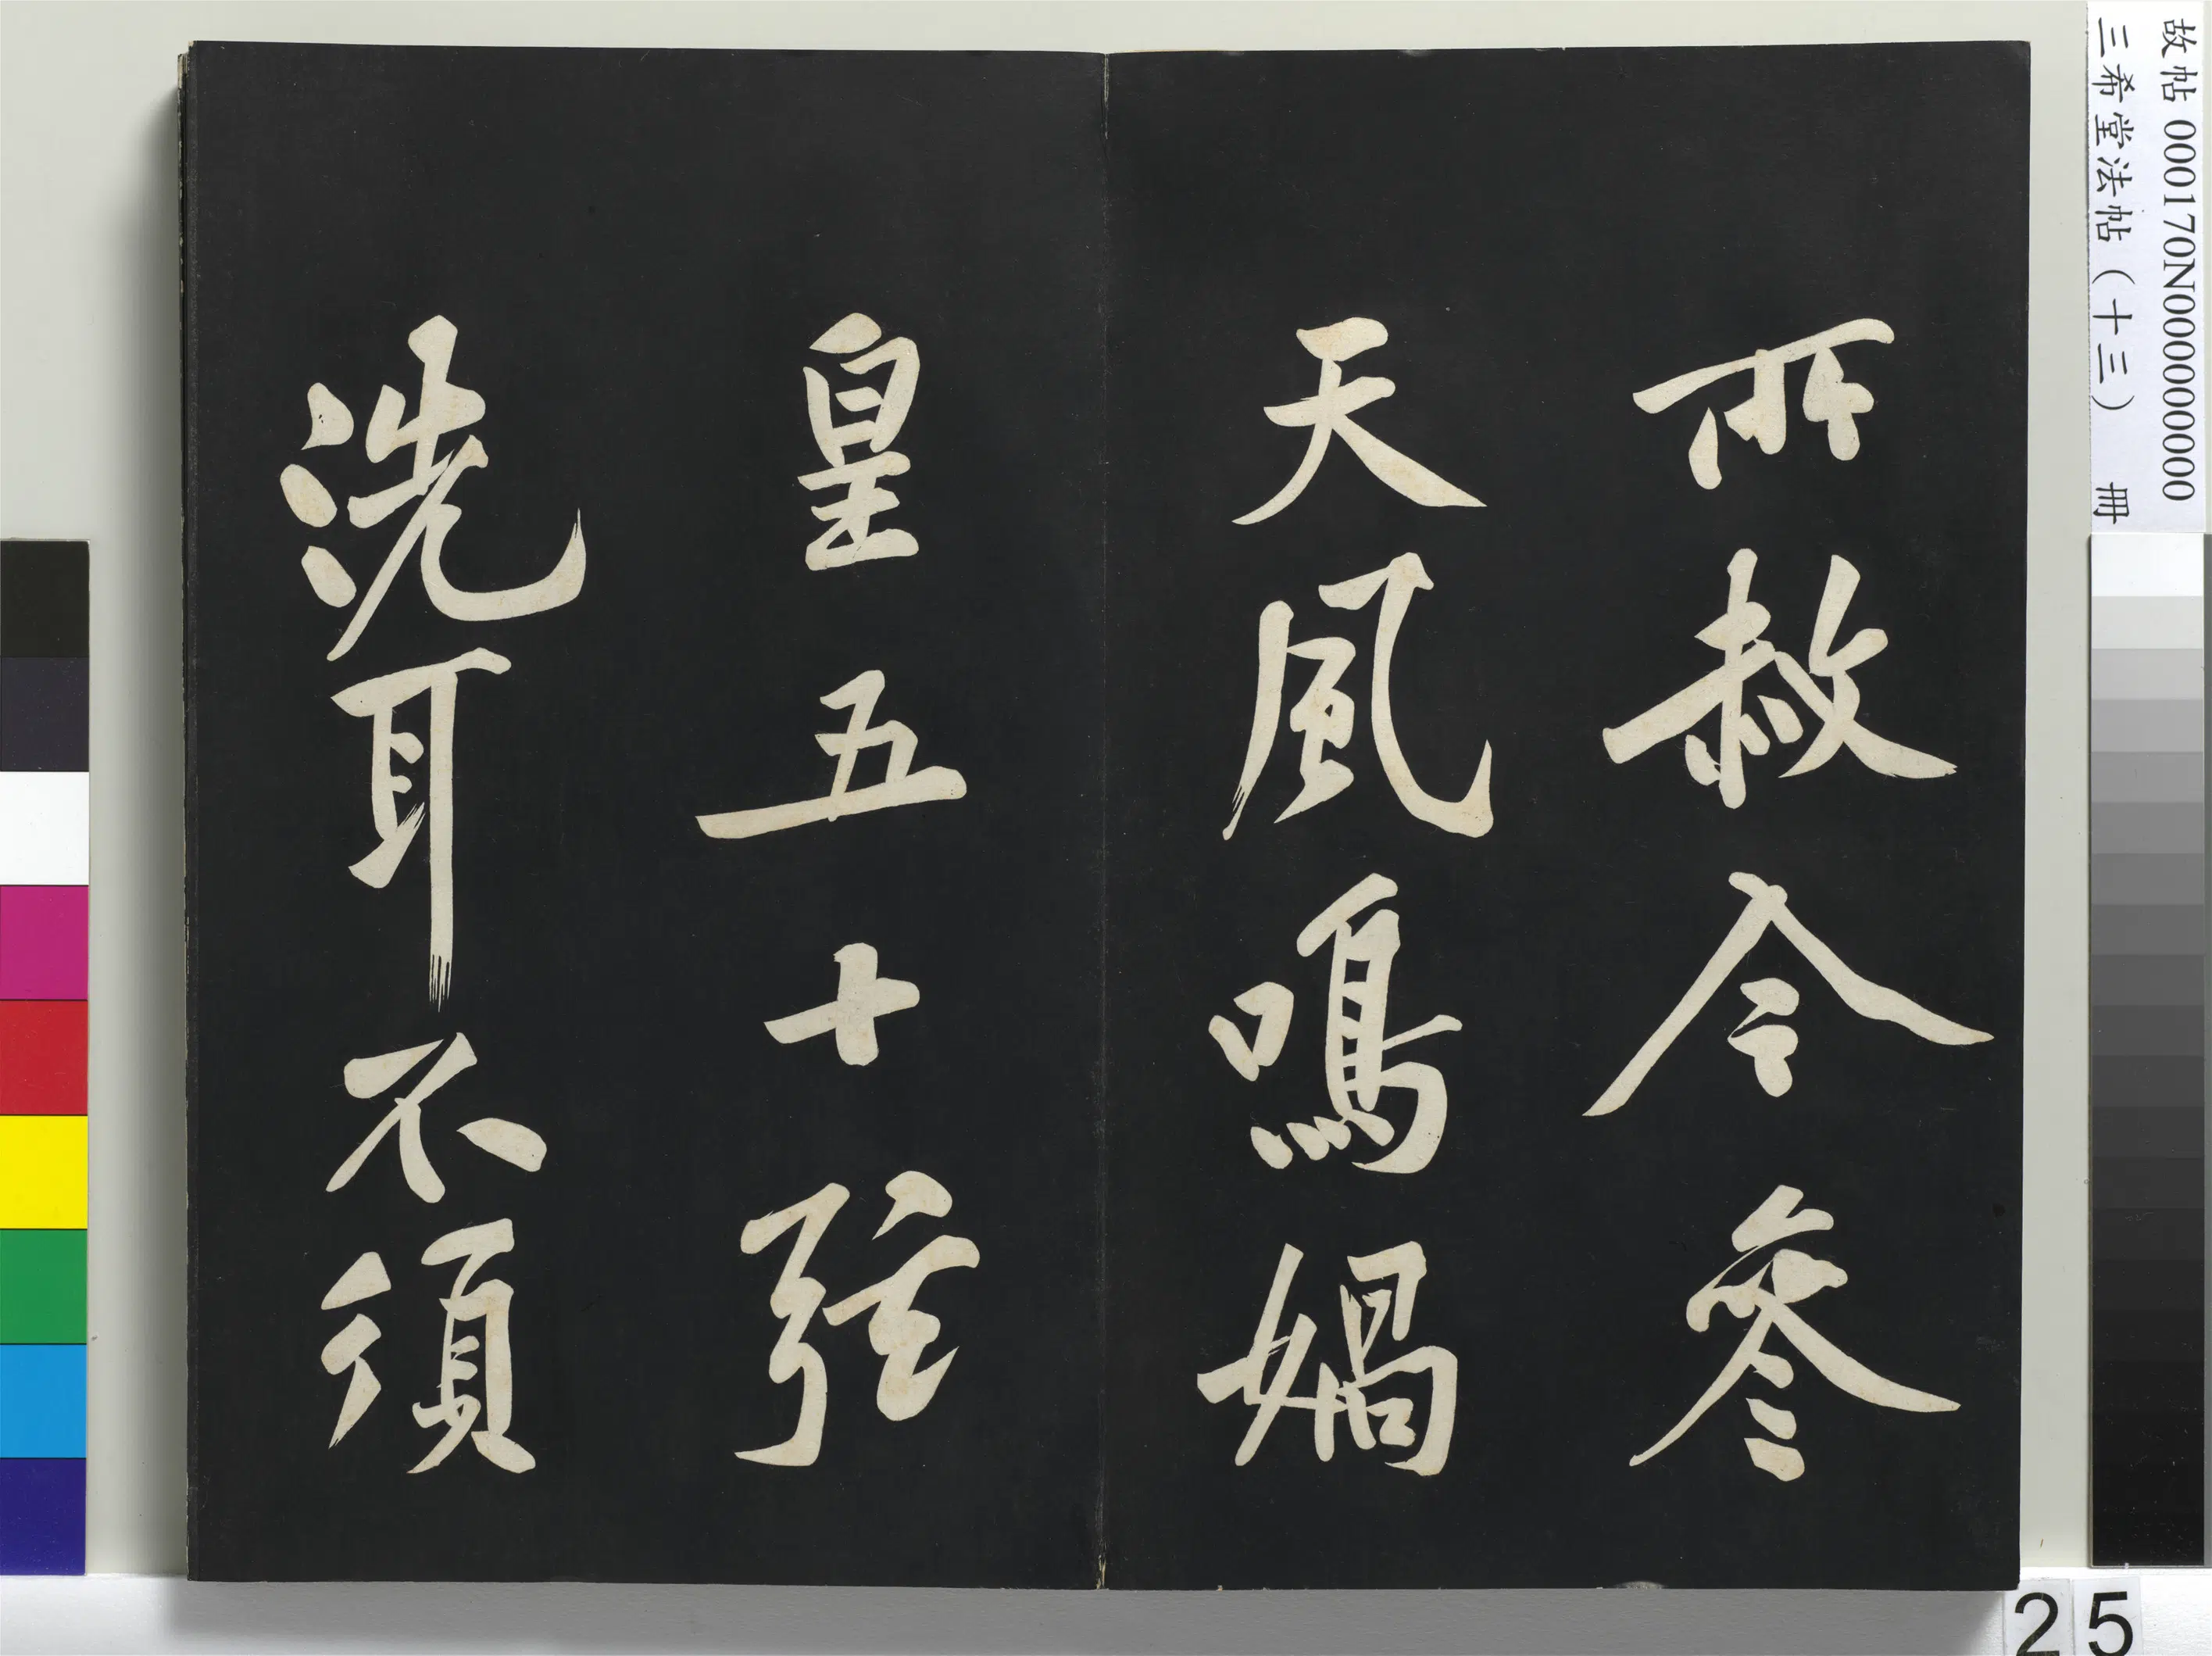 所赦令參
天風鳴媧
皇五十弦
洗耳不須
故帖 000170N000000000
三希堂法帖（十三） 冊
25